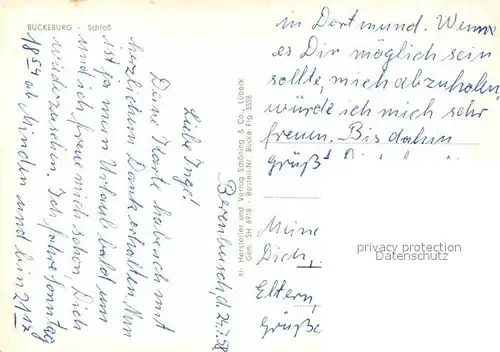 BÜCKEBURG - Schloß
Berenbusch, d. 24.7.58
Liebe Inge!
Deine Karte habe ich mit
herzlichem Dank erhalten. Nun
ist ja mein Urlaub bald um
und ich freue mich schon, Dich
wiederzusehen. Ich fahre Sonntag
18⁵⁴ ab Minden und bin 21¹⁷
in Dortmund. Wenn
es Dir möglich sein
sollte, mich abzuholen,
würde ich mich sehr
freuen. Bis dahin
grüßt
Meine
Dich,
Eltern,
Grüße
Hersteller und Verlag Schöning & Co., Lübeck
Gen. SH 6918 - Bestell-Nr. Bücke Ffg 5558
privacy protection
Datenschutz